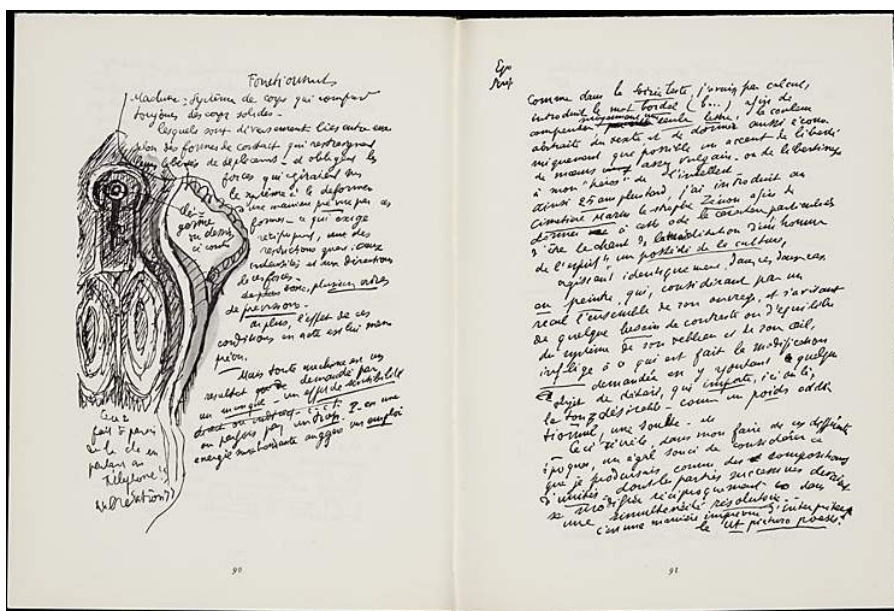 Fonctionnels
Machine : Système de corps qui comprend
toujours des corps solides -
lesquels sont diversement liés entre eux
selon des formes de contact qui restreignent
leurs libertés de déplacement - et obligent les
forces qui agiraient sur
le système à le déformer
d'une manière prévue par ces
formes - ce qui exige
des
restrictions quant aux
intensités et aux directions
de ces forces -
donc, plusieurs ordres
de prévisions -
de plus, l'effet de ces
conditions est lui même
prévu.
Mais toute machine est un
résultat demandé par
un manque - un effet de sensibilité
ou parfois par un trop - en une
énergie un emploi
fait à
la clé en
parlant au
téléphone
90
Ego
comme dans la Soirée Teste, j'avais par calcul,
introduit le mot bordel (b...) afin de
seule lettre, la couleur
abstraite du texte et de donner aussi écono-
miquement que possible un accent de liberté
de mœurs assez vulgaire - ou de libertinage
à mon "héros" de l'intellect -
ainsi 25 ans plus tard, j'ai introduit au
Cimetière Marin la strophe Zénon afin de
donner à cette ode le caractère particulier
d'être le chant de la méditation d'un homme
de l'esprit, un possédé de la culture,
agissant identiquement dans ces deux cas
en peintre, qui, considérant par un
recul l'ensemble de son ouvrage, et s'avisant
de quelque besoin de contraste ou d'équilibre
du système de son tableau et de son œil,
inflige à ce qui est fait la modification
demandée en y ajoutant quelque
objet de détail, qui importe, ici ou là,
le ton désirable - comme un poids addi
tionnel, une touche - etc
Ceci décèle, dans mon faire de ces différentes
époques, un égal souci de considérer ce
que je produisais comme des compositions
d'unités - dont les parties successives devaient
se modifier réciproquement dans
une simultanéité résolutoire -
c'est une manière imprévue d'interpréter
le ut pictura poesis!
91